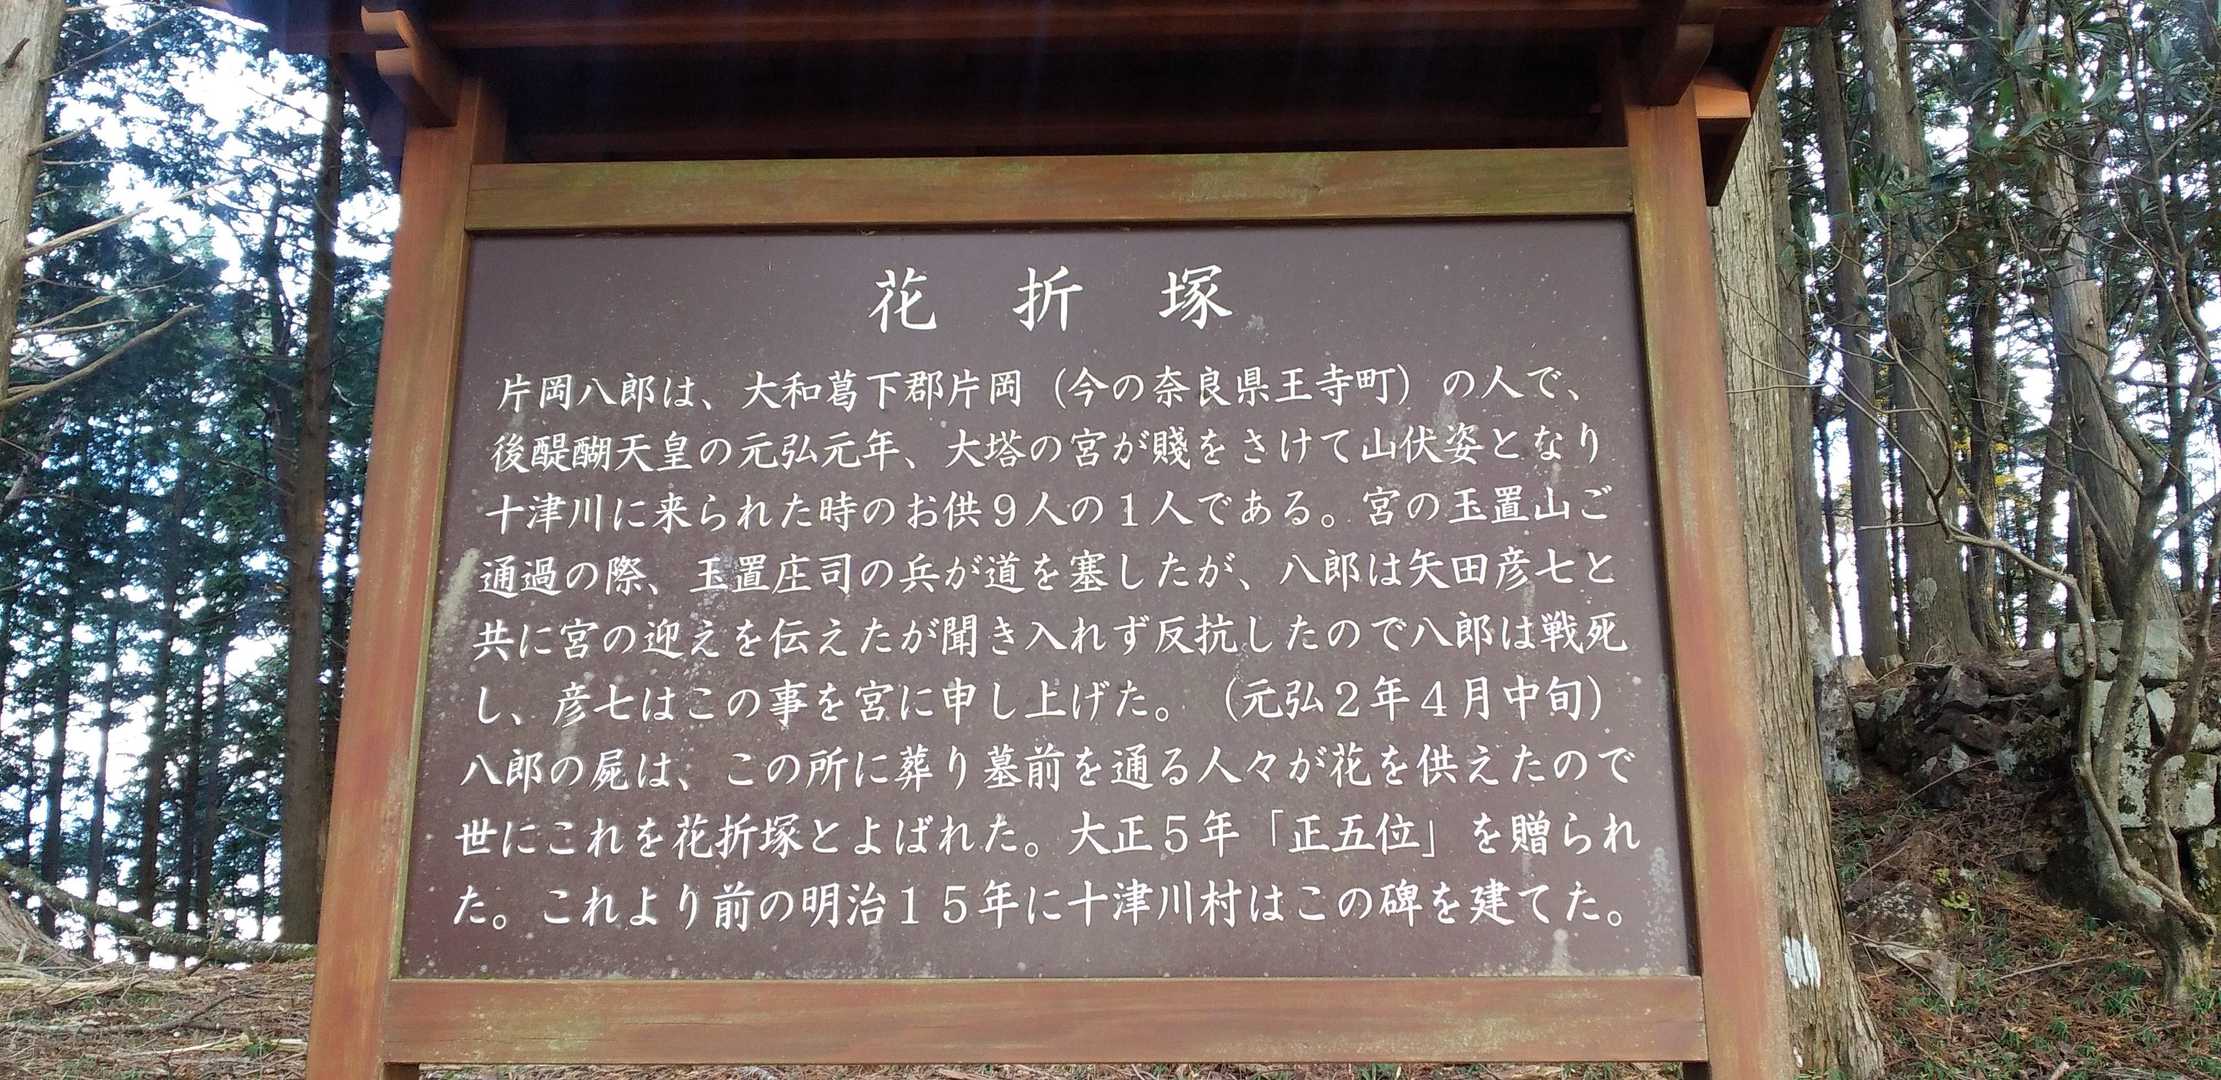 花折塚
片岡八郎は、大和葛下郡片岡（今の奈良県王寺町）の人で、
後醍醐天皇の元弘元年、大塔の宮が賤をさけて山伏姿となり
十津川に来られた時のお供９人の１人である。宮の玉置山ご
通過の際、玉置庄司の兵が道を塞したが、八郎は矢田彦七と
共に宮の迎えを伝えたが聞き入れず反抗したので八郎は戦死
し、彦七はこの事を宮に申し上げた。（元弘２年４月中旬）
八郎の屍は、この所に葬り墓前を通る人々が花を供えたので
世にこれを花折塚とよばれた。大正５年「正五位」を贈られ
た。これより前の明治１５年に十津川村はこの碑を建てた。